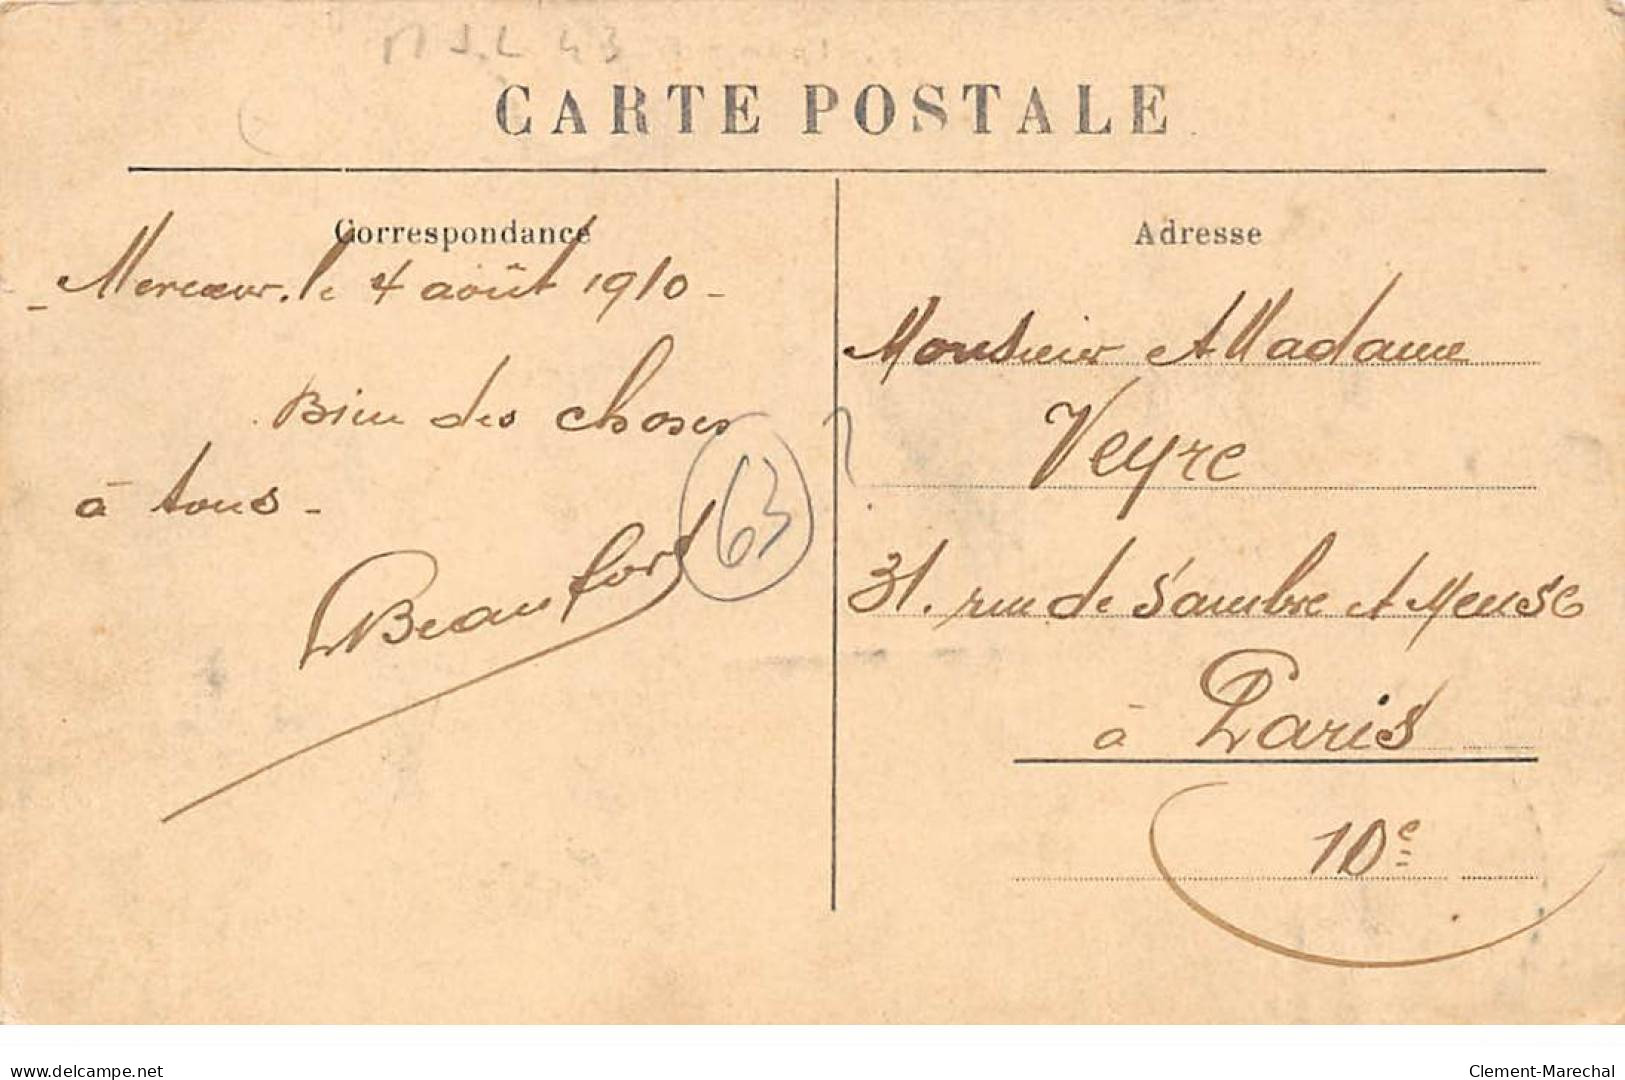 CARTE POSTALE
Correspondance
Mercœur. le 4 août 1910 -
Bien des choses
à tous -
Beaufort
63
?
Adresse
Monsieur et Madame
Veyre
31. rue de Sambre et Meuse
à Paris
10e
www.delcampe.net
Clement-Marechal